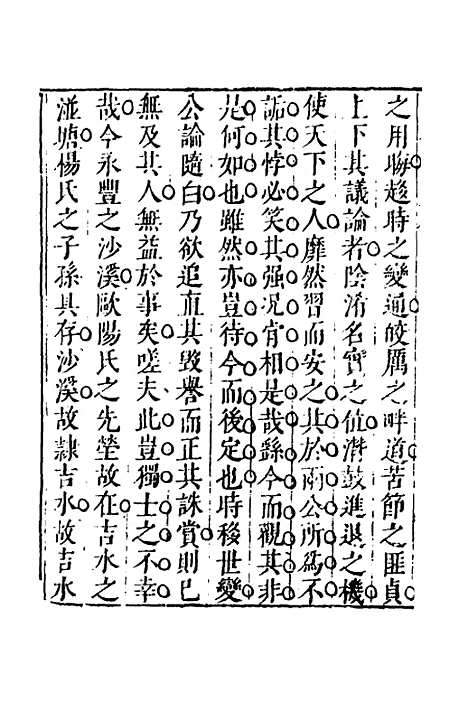 之用晦趍時之變通皎厲之畔道苦節之匪貞
上下其議論者陰淆名實之値潛鼓進退之機
使天下之人靡然習而安之其於兩公所爲不
詬其悖必笑其强况肯相是哉繇今而觀其非
是何如也雖然亦豈待今而後定也時移世變
公論隨白乃欲追直其毁譽而正其誅賞則已
無及其人無益於事矣嗟夫此豈獨士之不幸
哉今永豐之沙溪歐陽氏之先塋故在吉水之
湴塘楊氏之子孫具存沙溪故隷吉水故吉水